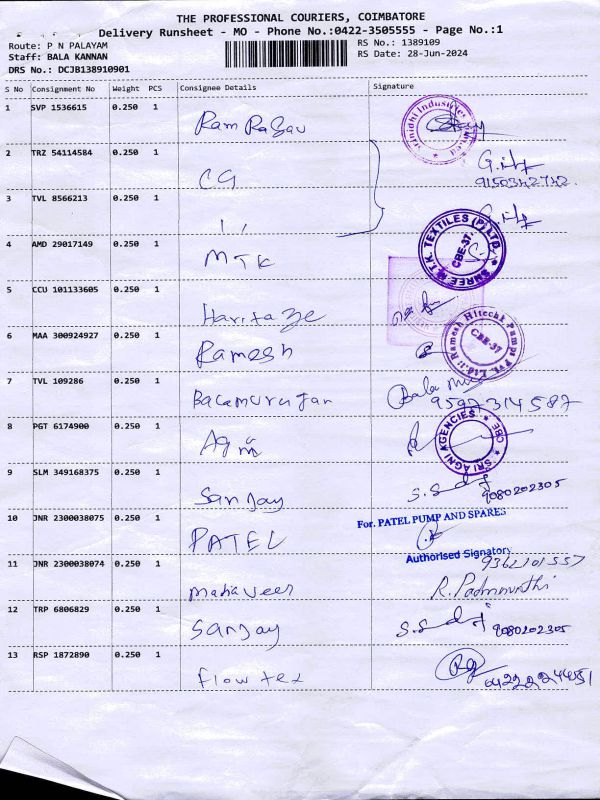 THE PROFESSIONAL COURIERS, COIMBATORE
Delivery Runsheet - MO - Phone No.:0422-3505555 - Page No.:1
Route: P N PALAYAM
RS No.: 1389109
Staff: BALA KANNAN
RS Date: 28-Jun-2024
DRS No.: DCJB138910901
S No Consignment No Weight PCS Consignee Details Signature
1 SVP 1536615 0.250 1 Ram Ragav
2 TRZ 54114584 0.250 1 CG
9150342742
3 TVL 8566213 0.250 1 ,,
4 AMD 29017149 0.250 1 MTK SHREE M.T.K. TEXTILES (P) LTD. CBE-37.
5 CCU 101133605 0.250 1 Haritage
6 MAA 300924927 0.250 1 Ramesh Ramesh Hitecht Pumps Pvt. Ltd. CBE-37
7 TVL 109286 0.250 1 Balamurugan Bala
9597314587
8 PGT 6174900 0.250 1 Agni SRI AGNI AGENCIES CBE
9 SLM 349168375 0.250 1 Sanjay 9080202305
10 JNR 2300038075 0.250 1 PATEL For. PATEL PUMP AND SPARES
Authorised Signatory
11 JNR 2300038074 0.250 1 Mahaveer 9362101557
R. Padmavathi
12 TRP 6806829 0.250 1 Sanjay 9080202305
13 RSP 1872890 0.250 1 Flowtex